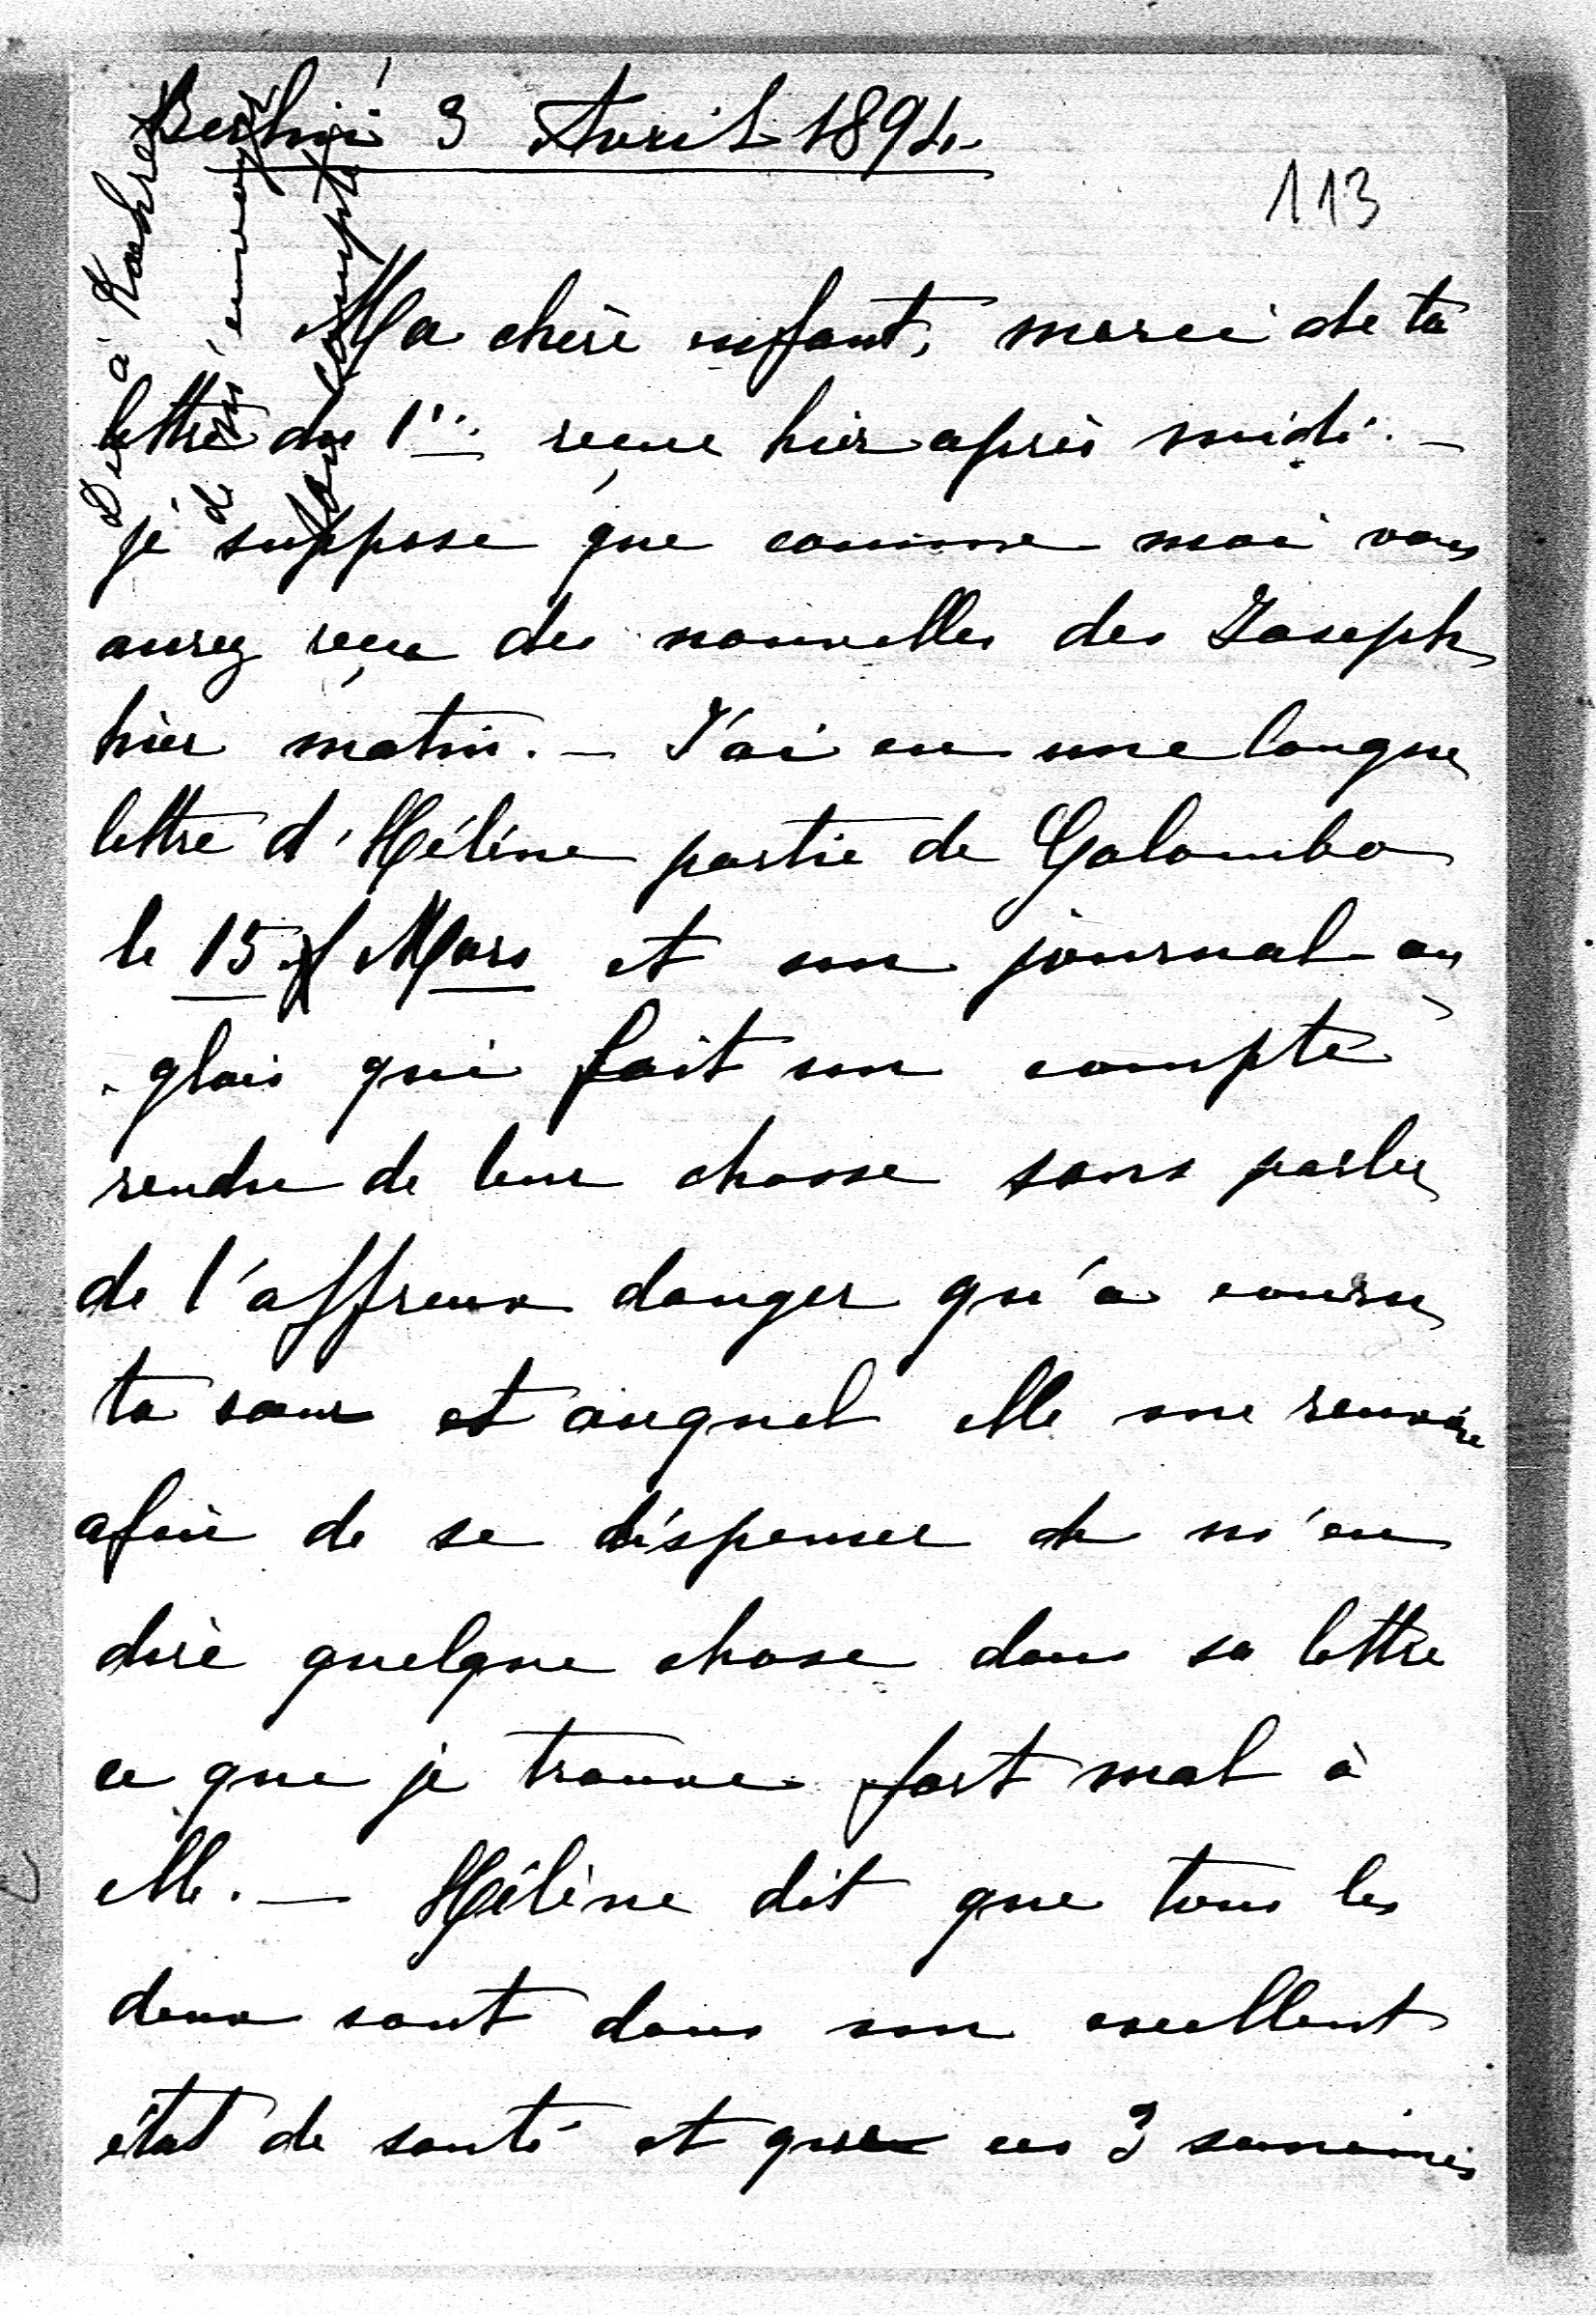 Berlin 3 Avril 1894.
113
Ma chère enfant, merci de ta
lettre du 1er reçue hier après midi. —
je suppose que comme moi vous
aurez reçu des nouvelles des Joseph
hier matin. — J'ai eu une longue
lettre d'Hélène partie de Colombo
le 15 Mars et un journal an
-glais qui fait un compte
rendu de leur chasse sans parler
de l'affreux danger qu'a couru
ta sœur et auquel elle me renvoie
afin de se dispenser de m'en
dire quelque chose dans sa lettre
ce que je trouve fort mal à
elle. — Hélène dit que tous les
deux sont dans un excellent
état de santé et que ces 3 semaines
Dis à
de m'envoyer
son compte